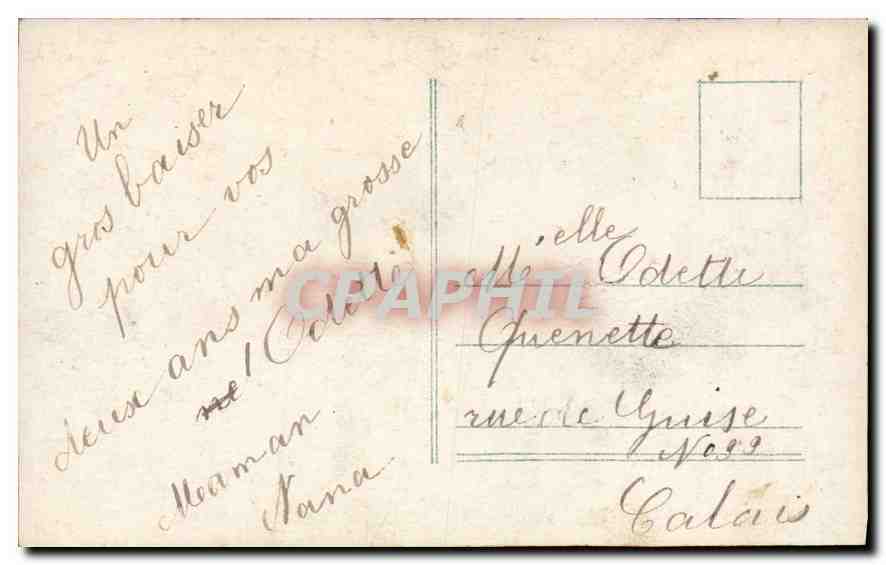 Un
gros baiser
pour vos
deux ans ma grosse
Odette
Maman
Nana
Melle Odette
Quenette
rue de Guise
No 99
Calais
CPAPHIL